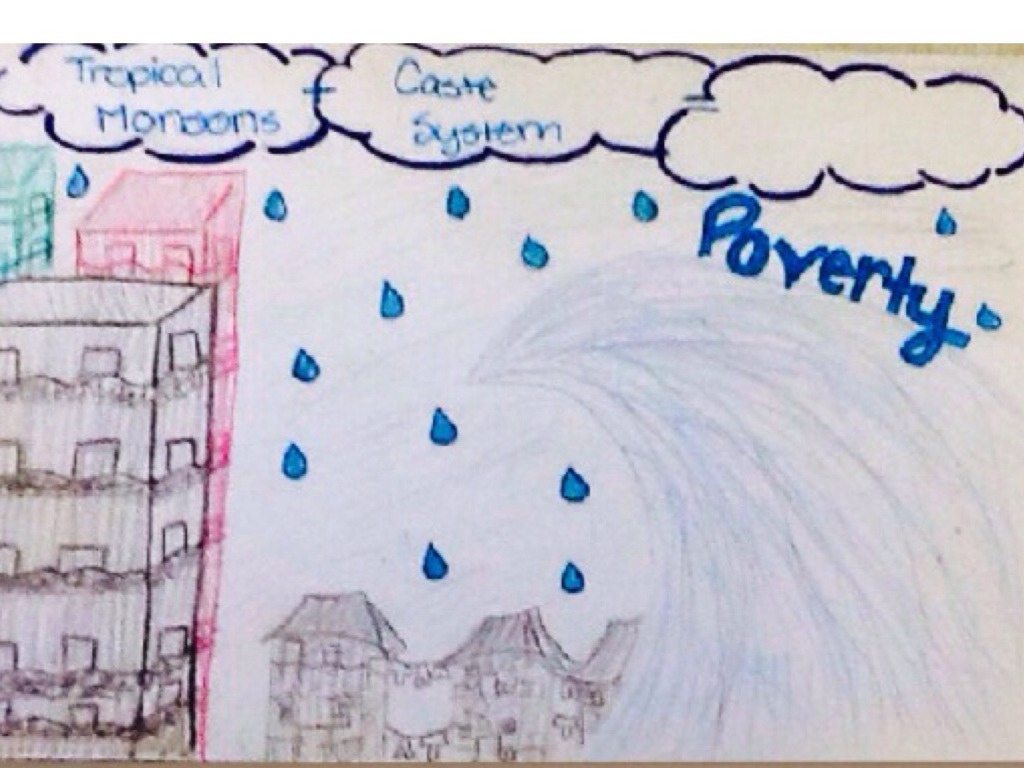 Tropical
Monsoons
+
Caste
System
=
Poverty